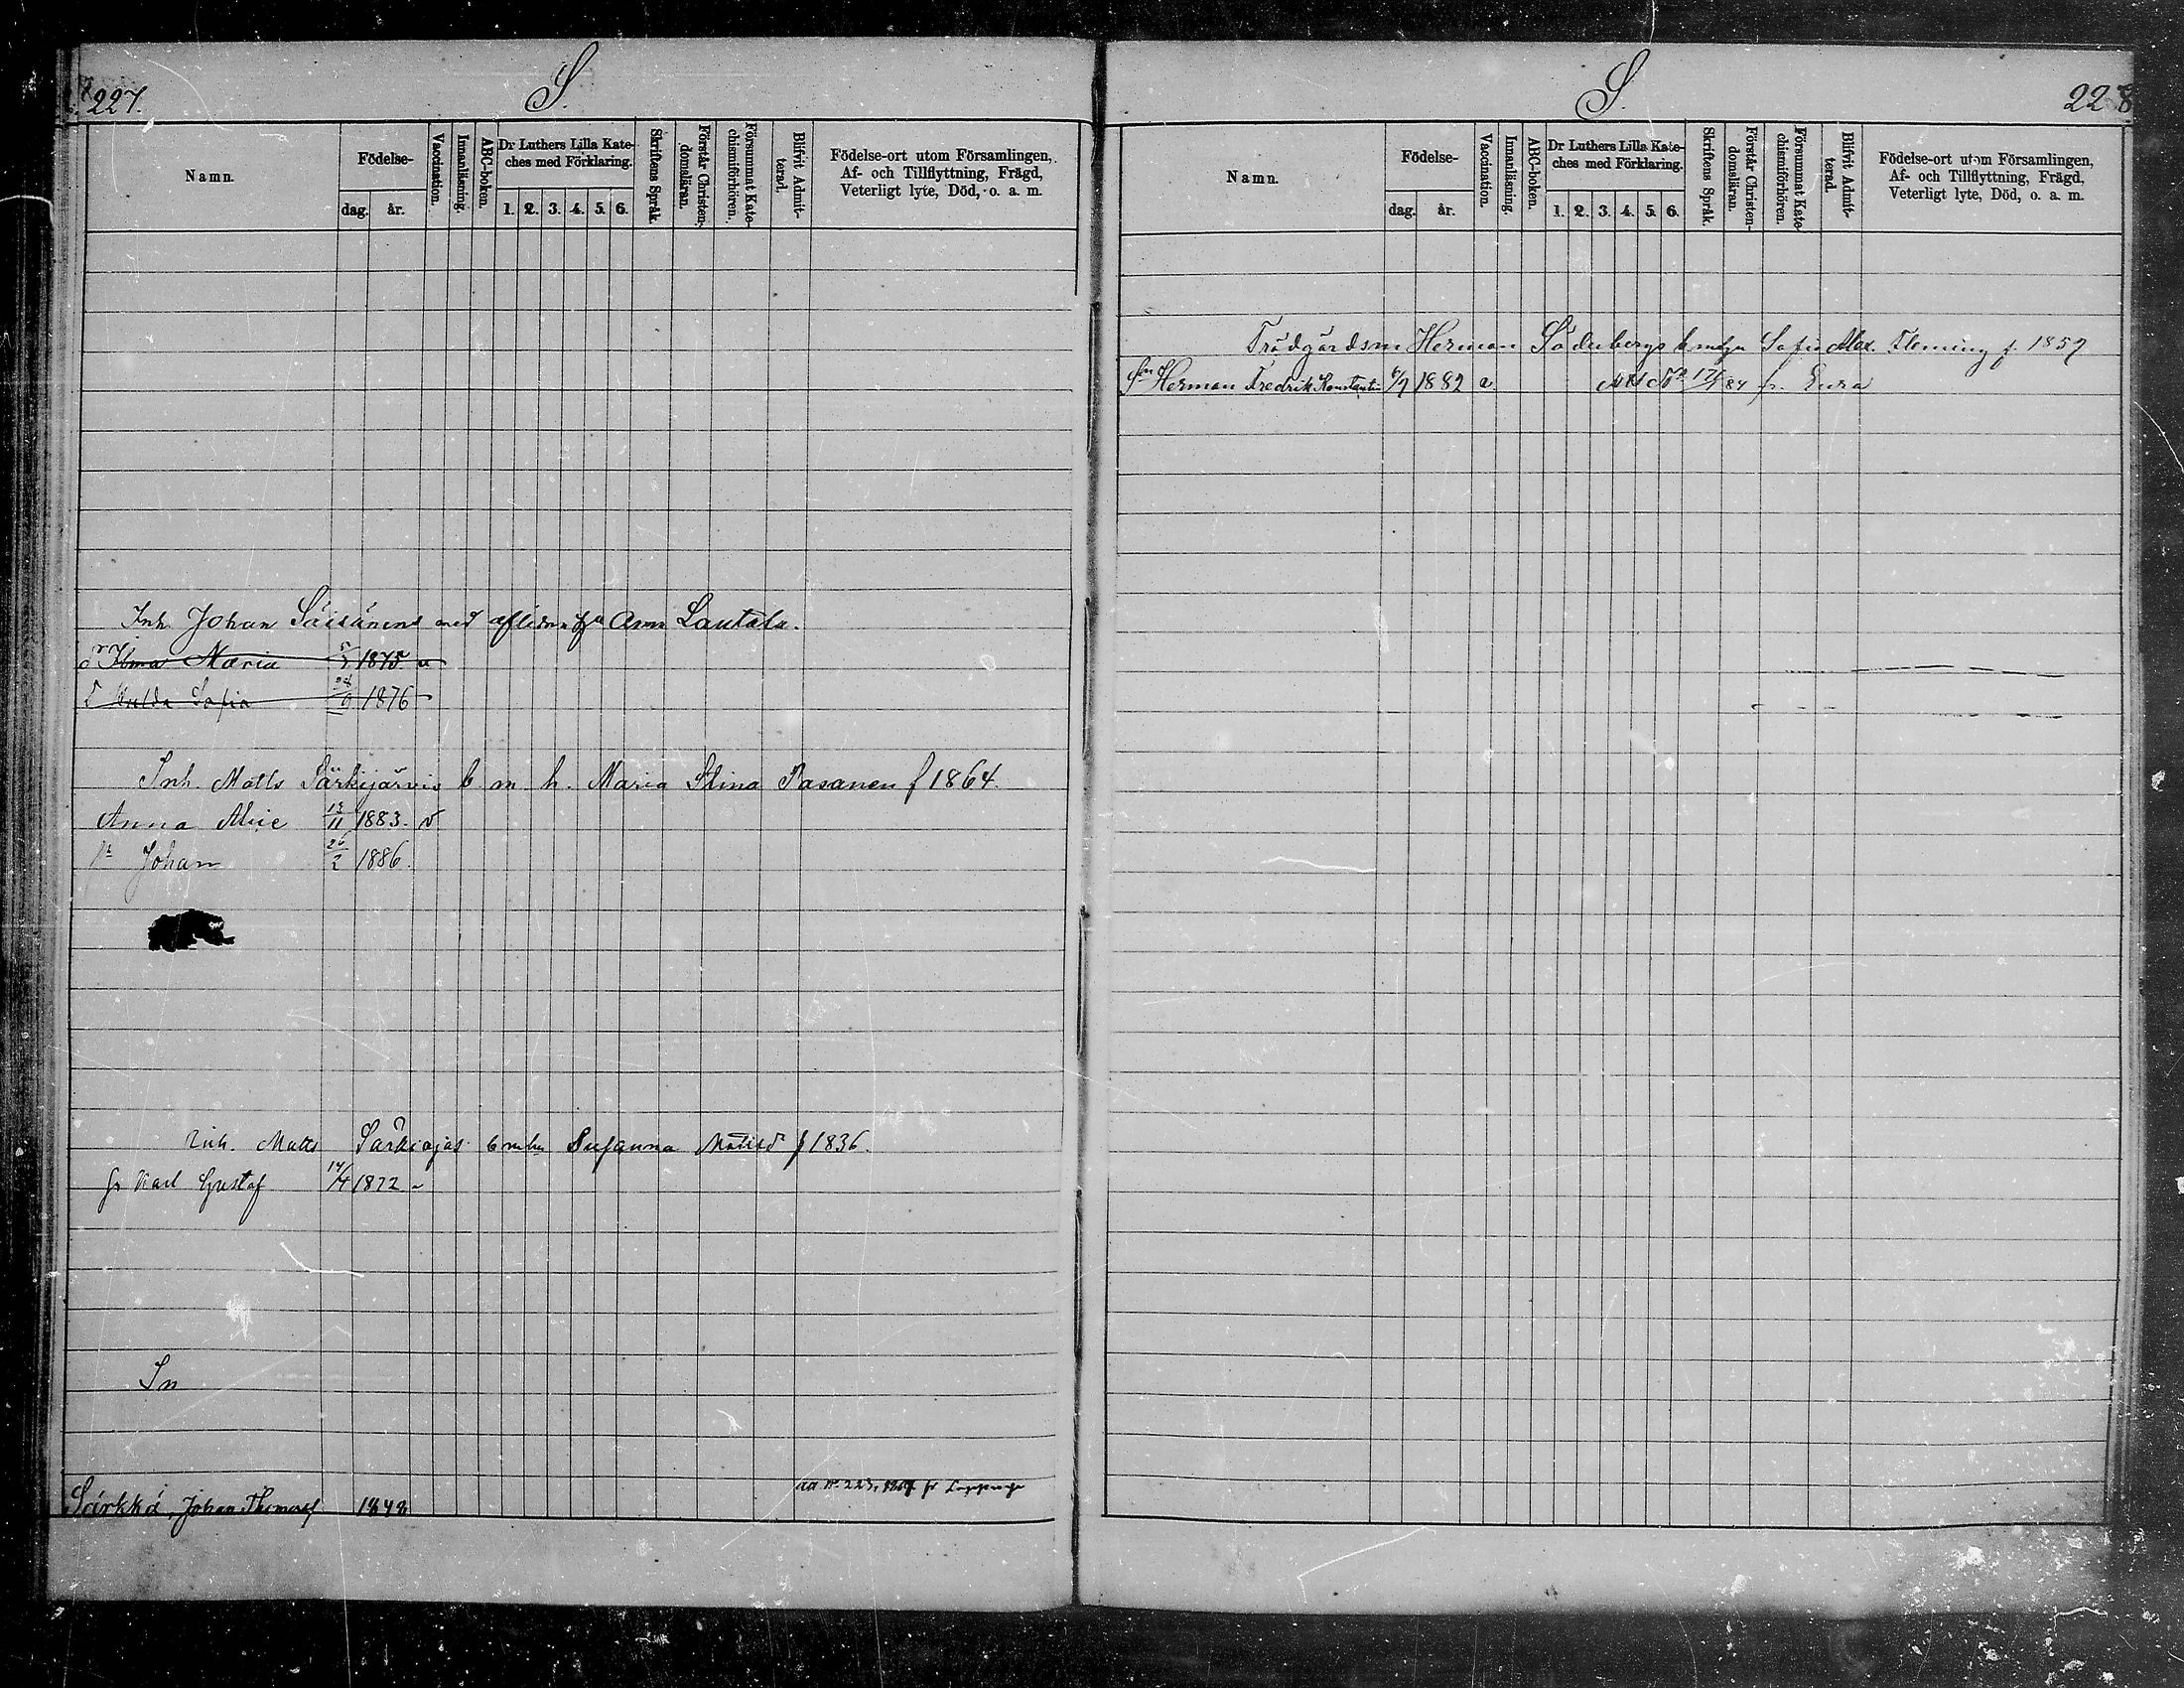 227.
S.
Namn.
Födelse-
dag.
år.
Vaccination.
Innanläsning.
ABC-boken.
Dr Luthers Lilla Kate-
ches med Förklaring.
1. 2. 3. 4. 5. 6.
Skriftens Språk.
Förstår Christen-
domsläran.
Försummat Kate-
chismiförhören.
Blifvit Admit-
terad.
Födelse-ort utom Församlingen,
Af- och Tillflyttning, Frägd,
Veterligt lyte, Död, o. a. m.
Inh. Johan Säisänens med aflidn. Lautala.
Maria 1875
Sofia 1876
Inh. Matts Särkijärvis b m h. Maria Stina Pasanen f 1864.
Anna 11 1883. v
Johan 2 1886.
Inh. Matts Susanna f 1836.
Karl Gustaf 14/4 1872
Sn
Särkkä, Johan 1848
223,
S.
228
Namn.
Födelse-
dag.
år.
Vaccination.
Innanläsning.
ABC-boken.
Dr Luthers Lilla Kate-
ches med Förklaring.
1. 2. 3. 4. 5. 6.
Skriftens Språk.
Förstår Christen-
domsläran.
Försummat Kate-
chismiförhören.
Blifvit Admit-
terad.
Födelse-ort utom Församlingen,
Af- och Tillflyttning, Frägd,
Veterligt lyte, Död, o. a. m.
Trädgårdsm Herman Söderbergs Sofia Fleming f. 1857
Herman Fredrik Konstantin 1882 84 fr. Eura